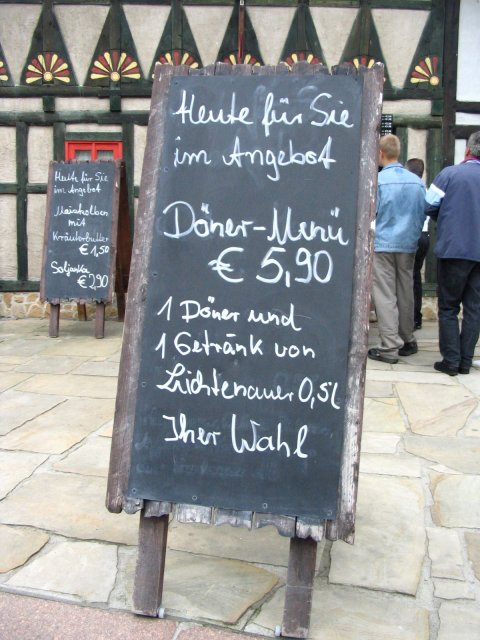 Heute für Sie
im Angebot
Döner-Menü
€ 5,90
1 Döner und
1 Getränk von
Lichtenauer 0,5l
Ihrer Wahl
Heute für Sie
im Angebot
Maiskolben
mit
Kräuterbutter
€ 1,50
Soljanka
€ 2,90